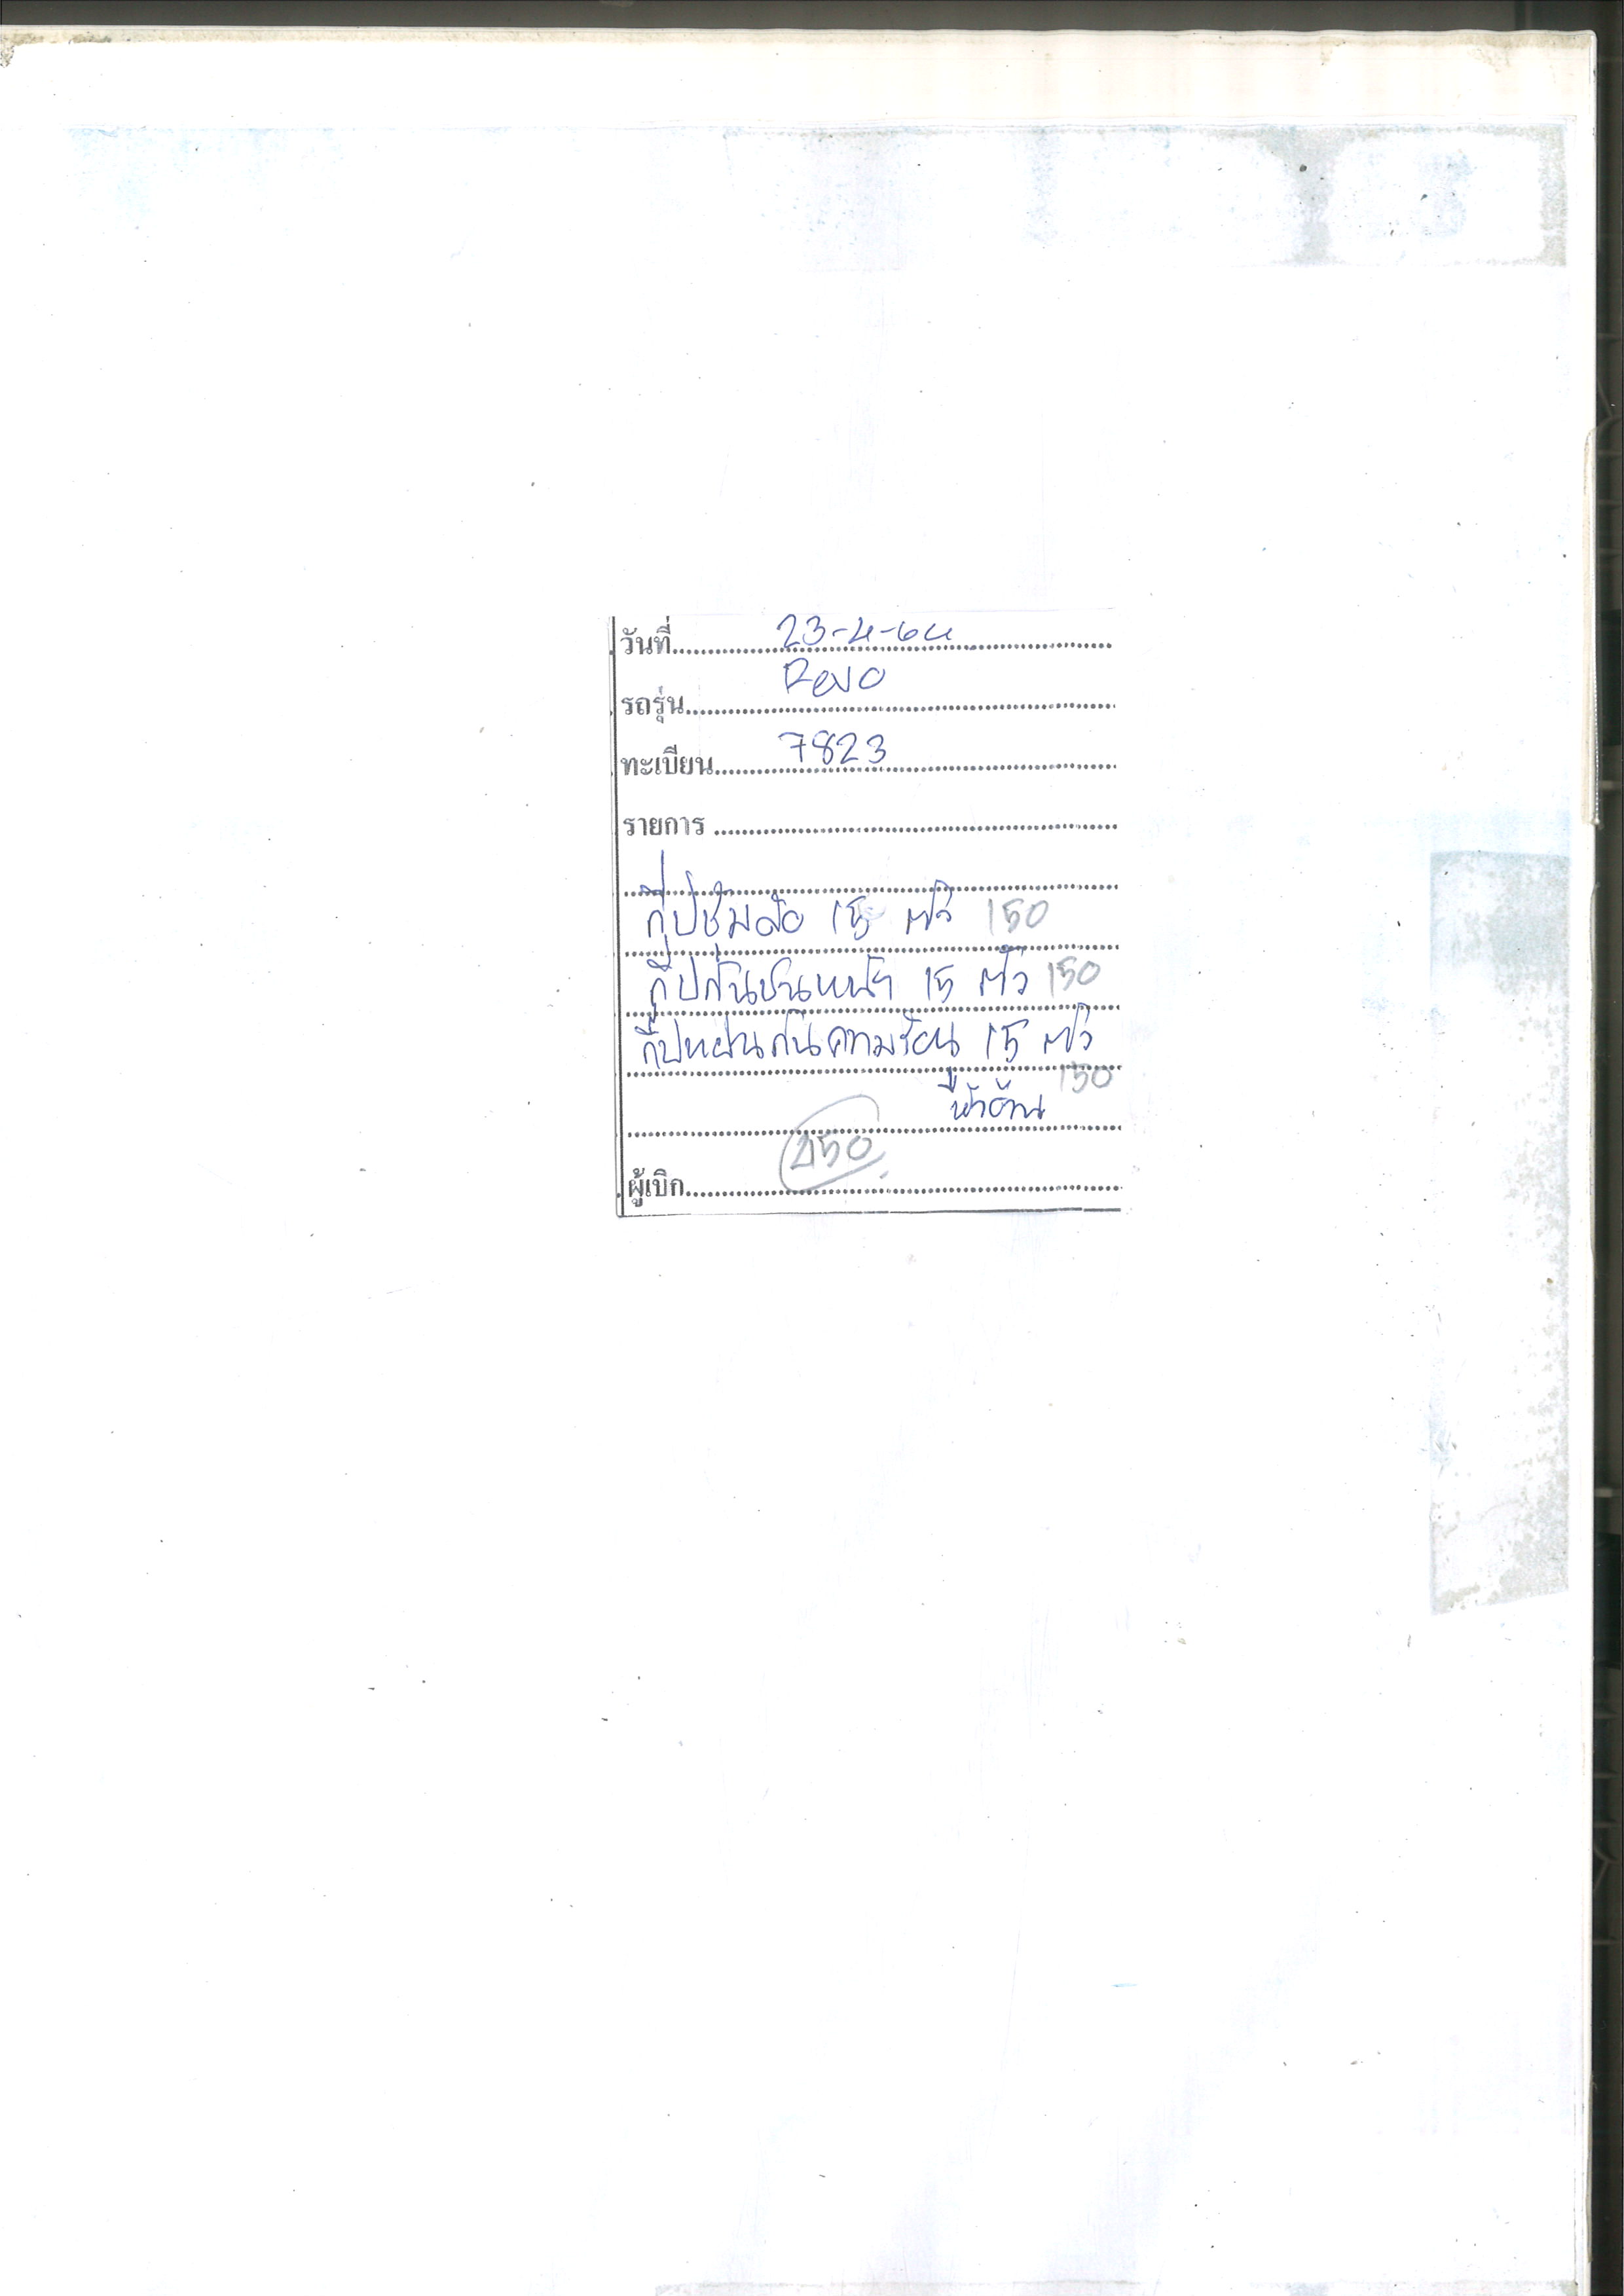 วันที่ 23-4-64
รถรุ่น Revo
ทะเบียน 7823
รายการ
กิ๊ปซุ้มล้อ 15 ตัว 150
กิ๊ปกันชนหน้า 15 ตัว 150
กิ๊ปแผ่นกันความร้อน 15 ตัว
150
450
ผู้เบิก